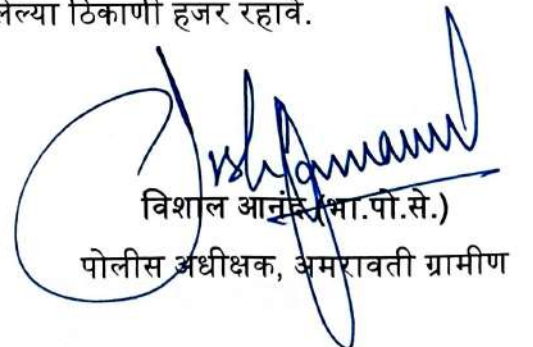 ठिकाणी हजर रहावे.
विशाल आनंद (भा.पो.से.)
पोलीस अधीक्षक, अमरावती ग्रामीण